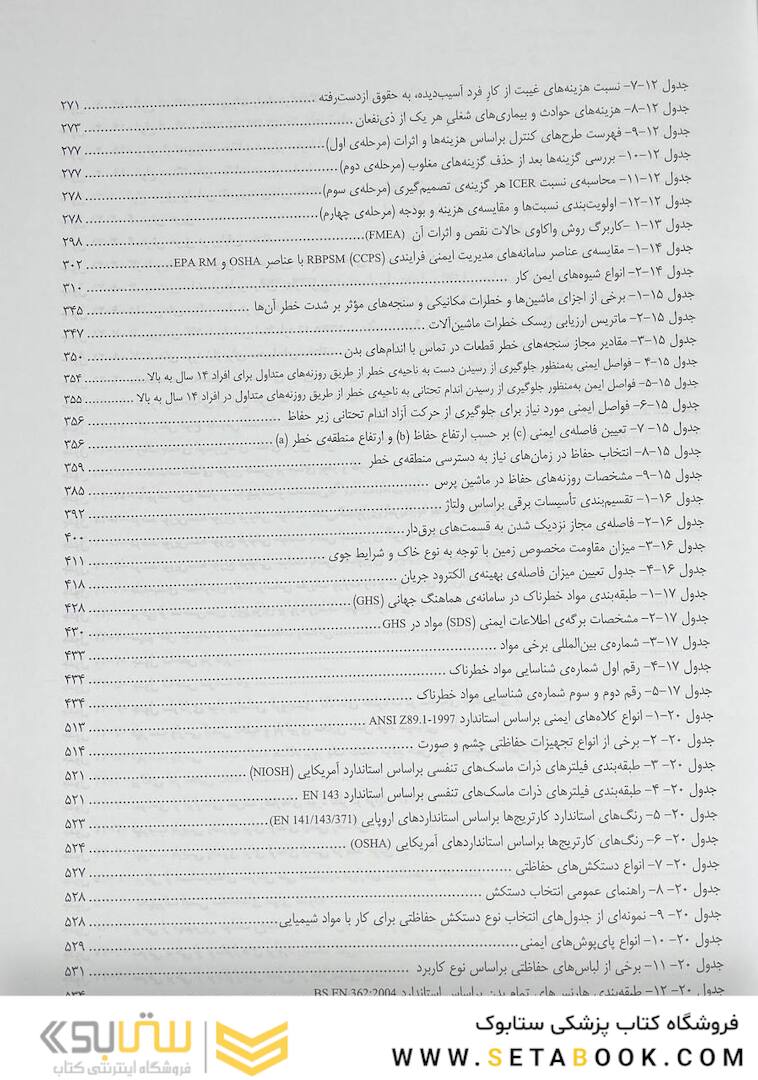 جدول ۱۲-۷- نسبت هزینه‌های غیبت از کار فرد آسیب‌دیده، به حقوق ازدست‌رفته ........ ۲۷۱
جدول ۱۲-۸- هزینه‌های حوادث و بیماری‌های شغلی هر یک از ذی‌نفعان ........ ۲۷۳
جدول ۱۲-۹- فهرست طرح‌های کنترل براساس هزینه‌ها و اثرات (مرحله‌ی اول) ........ ۲۷۷
جدول ۱۲-۱۰- بررسی گزینه‌ها بعد از حذف گزینه‌های مغلوب (مرحله‌ی دوم) ........ ۲۷۷
جدول ۱۲-۱۱- محاسبه‌ی نسبت ICER هر گزینه‌ی تصمیم‌گیری (مرحله‌ی سوم) ........ ۲۷۸
جدول ۱۲-۱۲- اولویت‌بندی نسبت‌ها و مقایسه‌ی هزینه و بودجه (مرحله‌ی چهارم) ........ ۲۷۸
جدول ۱۳-۱ -کاربرگ روش واکاوی حالات نقص و اثرات آن (FMEA) ........ ۲۹۸
جدول ۱۴-۱- مقایسه‌ی عناصر سامانه‌های مدیریت ایمنی فرایندی RBPSM (CCPS) با عناصر OSHA و EPA RM ........ ۳۰۲
جدول ۱۴-۲- انواع شیوه‌های ایمن کار ........ ۳۱۰
جدول ۱۵-۱- برخی از اجزای ماشین‌ها و خطرات مکانیکی و سنجه‌های مؤثر بر شدت خطر آن‌ها ........ ۳۴۵
جدول ۱۵-۲- ماتریس ارزیابی ریسک خطرات ماشین‌آلات ........ ۳۴۷
جدول ۱۵-۳- مقادیر مجاز سنجه‌های خطر قطعات در تماس با اندام‌های بدن ........ ۳۵۰
جدول ۱۵-۴ - فواصل ایمنی به‌منظور جلوگیری از رسیدن دست به ناحیه‌ی خطر از طریق روزنه‌های متداول برای افراد ۱۴ سال به بالا ........ ۳۵۴
جدول ۱۵-۵- فواصل ایمن به‌منظور جلوگیری از رسیدن اندام تحتانی به ناحیه‌ی خطر از طریق روزنه‌های متداول در افراد ۱۴ سال به بالا ........ ۳۵۵
جدول ۱۵-۶- فواصل ایمنی مورد نیاز برای جلوگیری از حرکت آزاد اندام تحتانی زیر حفاظ ........ ۳۵۶
جدول ۱۵- ۷- تعیین فاصله‌ی ایمنی (c) بر حسب ارتفاع حفاظ (b) و ارتفاع منطقه‌ی خطر (a) ........ ۳۵۶
جدول ۱۵-۸- انتخاب حفاظ در زمان‌های نیاز به دسترسی منطقه‌ی خطر ........ ۳۵۹
جدول ۱۵-۹- مشخصات روزنه‌های حفاظ در ماشین پرس ........ ۳۸۵
جدول ۱۶-۱- تقسیم‌بندی تأسیسات برقی براساس ولتاژ ........ ۳۹۲
جدول ۱۶-۲- فاصله‌ی مجاز نزدیک شدن به قسمت‌های برق‌دار ........ ۴۰۰
جدول ۱۶-۳- میزان مقاومت مخصوص زمین با توجه به نوع خاک و شرایط جوی ........ ۴۱۱
جدول ۱۶-۴- جدول تعیین میزان فاصله‌ی بهینه‌ی الکترود جریان ........ ۴۱۸
جدول ۱۷-۱- طبقه‌بندی مواد خطرناک در سامانه‌ی هماهنگ جهانی (GHS) ........ ۴۲۸
جدول ۱۷-۲- مشخصات برگه‌ی اطلاعات ایمنی (SDS) مواد در GHS ........ ۴۳۰
جدول ۱۷-۳- شماره‌ی بین‌المللی برخی مواد ........ ۴۳۳
جدول ۱۷-۴- رقم اول شماره‌ی شناسایی مواد خطرناک ........ ۴۳۴
جدول ۱۷-۵- رقم دوم و سوم شماره‌ی شناسایی مواد خطرناک ........ ۴۳۴
جدول ۲۰-۱- انواع کلاه‌های ایمنی براساس استاندارد ANSI Z89.1-1997 ........ ۵۱۳
جدول ۲۰- ۲- برخی از انواع تجهیزات حفاظتی چشم و صورت ........ ۵۱۴
جدول ۲۰- ۳- طبقه‌بندی فیلترهای ذرات ماسک‌های تنفسی براساس استاندارد آمریکایی (NIOSH) ........ ۵۲۱
جدول ۲۰- ۴- طبقه‌بندی فیلترهای ذرات ماسک‌های تنفسی براساس استاندارد EN 143 ........ ۵۲۱
جدول ۲۰- ۵- رنگ‌های استاندارد کارتریج‌ها براساس استانداردهای اروپایی (EN 141/143/371) ........ ۵۲۳
جدول ۲۰- ۶- رنگ‌های کارتریج‌ها براساس استانداردهای آمریکایی (OSHA) ........ ۵۲۴
جدول ۲۰- ۷- انواع دستکش‌های حفاظتی ........ ۵۲۷
جدول ۲۰- ۸- راهنمای عمومی انتخاب دستکش ........ ۵۲۸
جدول ۲۰- ۹- نمونه‌ای از جدول‌های انتخاب نوع دستکش حفاظتی برای کار با مواد شیمیایی ........ ۵۲۸
جدول ۲۰- ۱۰- انواع پای‌پوش‌های ایمنی ........ ۵۲۹
جدول ۲۰- ۱۱- برخی از لباس‌های حفاظتی براساس نوع کاربرد ........ ۵۳۱
جدول ۲۰- ۱۲- طبقه‌بندی هارنس‌های تمام بدن براساس استاندارد BS EN 362:2004
فروشگاه کتاب پزشکی ستابوک
WWW.SETABOOK.COM
ستابوک
فروشگاه اینترنتی کتاب